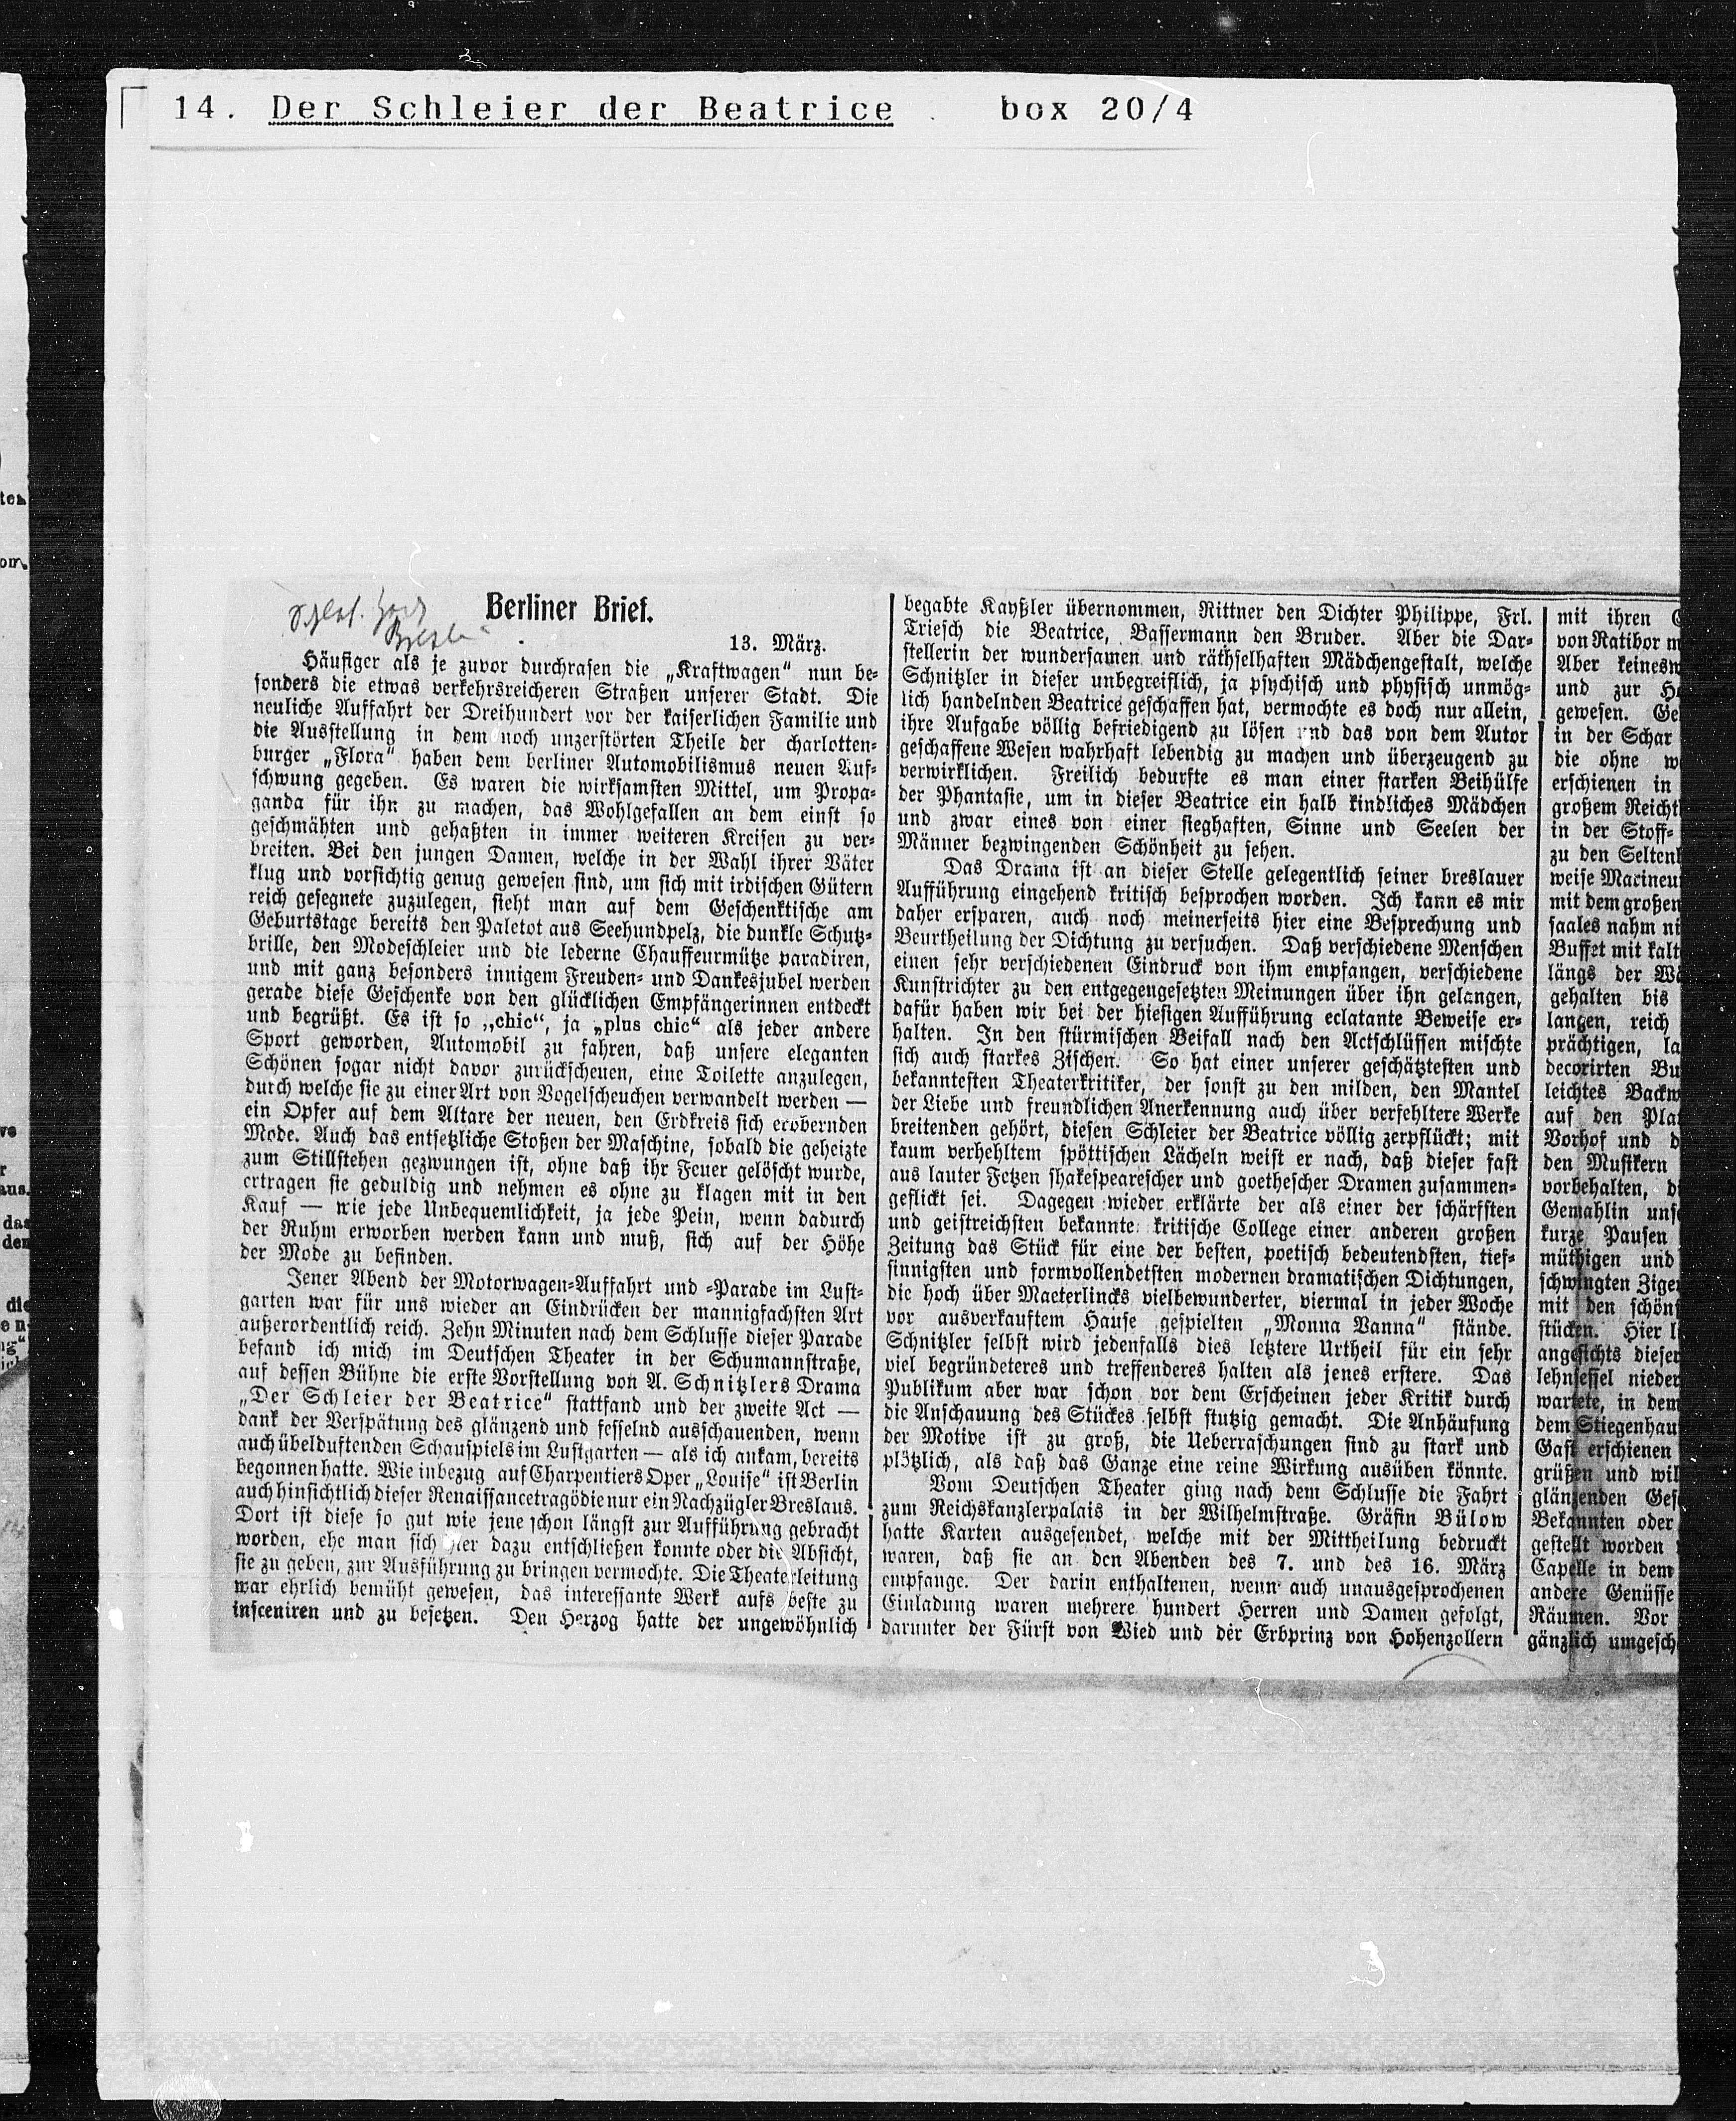 14. Der Schleier der Beatrice box 20/4
Berliner Brief.
13. März.
Häufiger als je zuvor durchrasen die „Kraftwagen“ nun be-
sonders die etwas verkehrsreicheren Straßen unserer Stadt. Die
neuliche Auffahrt der Dreihundert vor der kaiserlichen Familie und
die Ausstellung in dem noch unzerstörten Theile der charlotten-
burger „Flora“ haben dem berliner Automobilismus neuen Auf-
schwung gegeben. Es waren die wirksamsten Mittel, um Propa-
ganda für ihn zu machen, das Wohlgefallen an dem einst so
geschmähten und gehaßten in immer weiteren Kreisen zu ver-
breiten. Bei den jungen Damen, welche in der Wahl ihrer Väter
klug und vorsichtig genug gewesen sind, um sich mit irdischen Gütern
reich gesegnete zuzulegen, sieht man auf dem Geschenktische am
Geburtstage bereits den Paletot aus Seehundpelz, die dunkle Schutz-
brille, den Modeschleier und die lederne Chauffeurmütze paradiren,
und mit ganz besonders innigem Freuden- und Dankesjubel werden
gerade diese Geschenke von den glücklichen Empfängerinnen entdeckt
und begrüßt. Es ist so „chic“, ja „plus chic“ als jeder andere
Sport geworden, Automobil zu fahren, daß unsere eleganten
Schönen sogar nicht davor zurückscheuen, eine Toilette anzulegen,
durch welche sie zu einer Art von Vogelscheuchen verwandelt werden —
ein Opfer auf dem Altare der neuen, den Erdkreis sich erobernden
Mode. Auch das entsetzliche Stoßen der Maschine, sobald die geheizte
zum Stillstehen gezwungen ist, ohne daß ihr Feuer gelöscht wurde,
ertragen sie geduldig und nehmen es ohne zu klagen mit in den
Kauf — wie jede Unbequemlichkeit, ja jede Pein, wenn dadurch
der Ruhm erworben werden kann und muß, sich auf der Höhe
der Mode zu befinden.
Jener Abend der Motorwagen-Auffahrt und -Parade im Lust-
garten war für uns wieder an Eindrücken der mannigfachsten Art
außerordentlich reich. Zehn Minuten nach dem Schlusse dieser Parade
befand ich mich im Deutschen Theater in der Schumannstraße,
auf dessen Bühne die erste Vorstellung von A. Schnitzlers Drama
„Der Schleier der Beatrice“ stattfand und der zweite Act —
dank der Verspätung des glänzend und fesselnd ausschauenden, wenn
auch übelduftenden Schauspiels im Lustgarten — als ich ankam, bereits
begonnen hatte. Wie inbezug auf Charpentiers Oper „Louise“ ist Berlin
auch hinsichtlich dieser Renaissancetragödie nur ein Nachzügler Breslaus.
Dort ist diese so gut wie jene schon längst zur Aufführung gebracht
worden, ehe man sich hier dazu entschließen konnte oder die Absicht,
sie zu geben, zur Ausführung zu bringen vermochte. Die Theaterleitung
war ehrlich bemüht gewesen, das interessante Werk aufs beste zu
insceniren und zu besetzen. Den Herzog hatte der ungewöhnlich
begabte Kayßler übernommen, Rittner den Dichter Philippe, Frl.
Triesch die Beatrice, Bassermann den Bruder. Aber die Dar-
stellerin der wundersamen und räthselhaften Mädchengestalt, welche
Schnitzler in dieser unbegreiflich, ja psychisch und physisch unmög-
lich handelnden Beatrice geschaffen hat, vermochte es doch nur allein,
ihre Aufgabe völlig befriedigend zu lösen und das von dem Autor
geschaffene Wesen wahrhaft lebendig zu machen und überzeugend zu
verwirklichen. Freilich bedurfte es man einer starken Beihülfe
der Phantasie, um in dieser Beatrice ein halb kindliches Mädchen
und zwar eines von einer sieghaften, Sinne und Seelen der
Männer bezwingenden Schönheit zu sehen.
Das Drama ist an dieser Stelle gelegentlich seiner breslauer
Aufführung eingehend kritisch besprochen worden. Ich kann es mir
daher ersparen, auch noch meinerseits hier eine Besprechung und
Beurtheilung der Dichtung zu versuchen. Daß verschiedene Menschen
einen sehr verschiedenen Eindruck von ihm empfangen, verschiedene
Kunstrichter zu den entgegengesetzten Meinungen über ihn gelangen,
dafür haben wir bei der hiesigen Aufführung eclatante Beweise er-
halten. In den stürmischen Beifall nach den Actschlüssen mischte
sich auch starkes Zischen. So hat einer unserer geschätztesten und
bekanntesten Theaterkritiker, der sonst zu den milden, den Mantel
der Liebe und freundlichen Anerkennung auch über verfehltere Werke
breitenden gehört, diesen Schleier der Beatrice völlig zerpflückt; mit
kaum verhehltem spöttischen Lächeln weist er nach, daß dieser fast
aus lauter Fetzen shakespearescher und goethescher Dramen zusammen-
geflickt sei. Dagegen wieder erklärte der als einer der schärfsten
und geistreichsten bekannte kritische College einer anderen großen
Zeitung das Stück für eine der besten, poetisch bedeutendsten, tief-
sinnigsten und formvollendetsten modernen dramatischen Dichtungen,
die hoch über Maeterlincks vielbewunderter, viermal in jeder Woche
vor ausverkauftem Hause gespielten „Monna Vanna“ stände.
Schnitzler selbst wird jedenfalls dies letztere Urtheil für ein sehr
viel begründeteres und treffenderes halten als jenes erstere. Das
Publikum aber war schon vor dem Erscheinen jeder Kritik durch
die Anschauung des Stückes selbst stutzig gemacht. Die Anhäufung
der Motive ist zu groß, die Ueberraschungen sind zu stark und
plötzlich, als daß das Ganze eine reine Wirkung ausüben könnte.
Vom Deutschen Theater ging nach dem Schlusse die Fahrt
zum Reichskanzlerpalais in der Wilhelmstraße. Gräfin Bülow
hatte Karten ausgesendet, welche mit der Mittheilung bedruckt
waren, daß sie an den Abenden des 7. und des 16. März
empfange. Der darin enthaltenen, wenn auch unausgesprochenen
Einladung waren mehrere hundert Herren und Damen gefolgt,
darunter der Fürst von Wied und der Erbprinz von Hohenzollern
mit ihren
von Ratibor
Aber
und zur
gewesen.
in der Schar
die ohne
erschienen in
großem
in der Stoff-
zu den
weise
mit dem großen
saales nahm
Buffet mit
längs der
gehalten bis
langen, reich
prächtigen,
decorirten
leichtes
auf den
Vorhof und
den Musikern
vorbehalten,
Gemahlin
kurze Pausen
müthigen und
schwingten
mit den
stücken. Hier
angesichts dieser
lehnsessel
wartete, in dem
dem
Gast erschienen
grüßen und
glänzenden
Bekannten oder
gestellt worden
Capelle in dem
andere Genüsse
Räumen. Vor
gänzlich